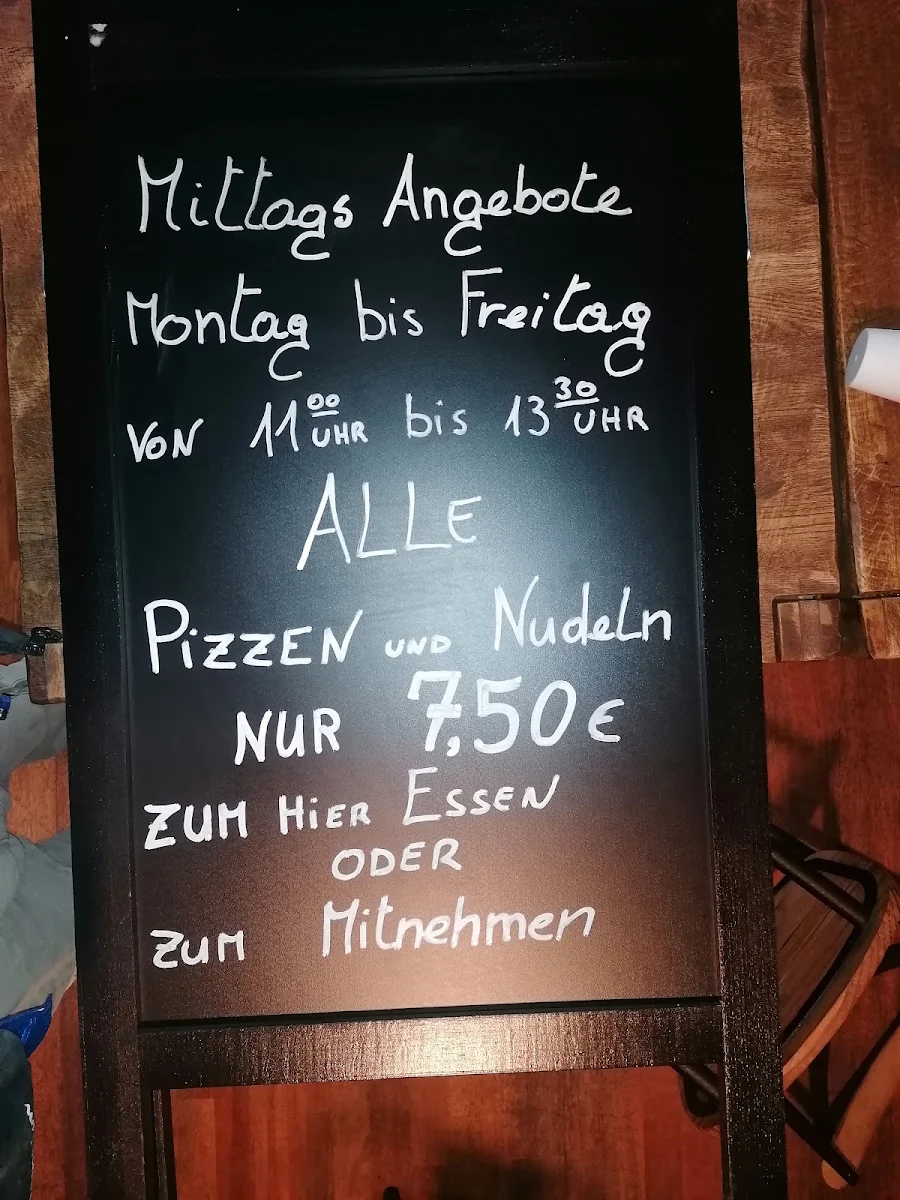 Mittags Angebote
Montag bis Freitag
VON 11 00 UHR bis 13 30 UHR
ALLE
PizzEN UND Nudeln
NUR 7,50 €
ZUM HiER ESSEN
ODER
ZUM Mitnehmen